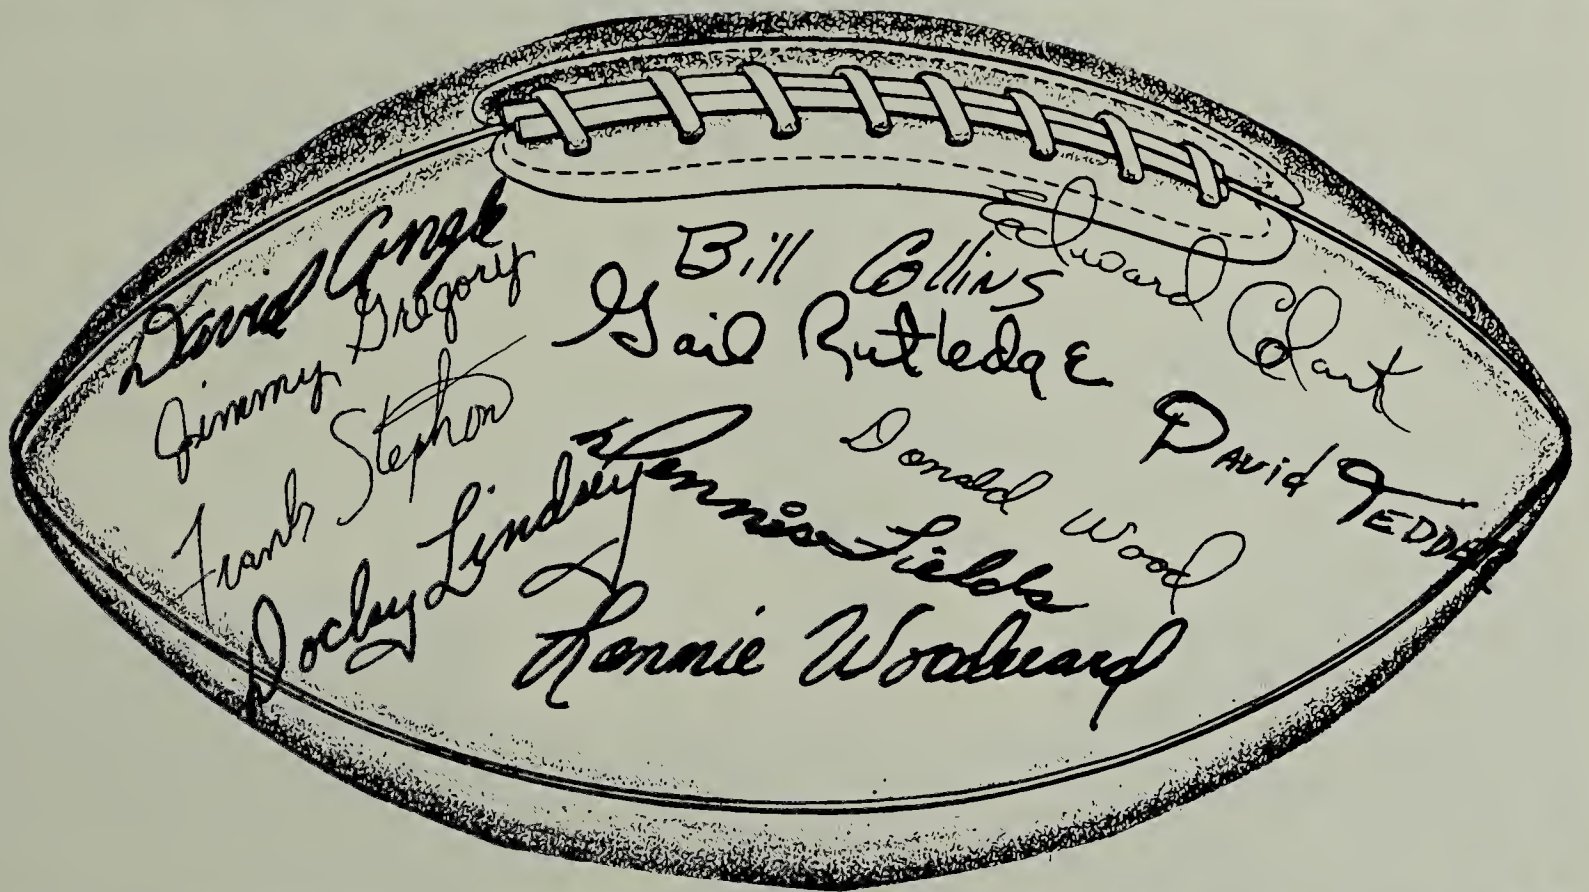 David Angle
Jimmy Gregory
Frank Stephon
Docky Lindsey
Bill Collins
Gail Rutledge
Edward Clark
Dennis Fields
Donald Wood
David Tedder
Ronnie Woodward